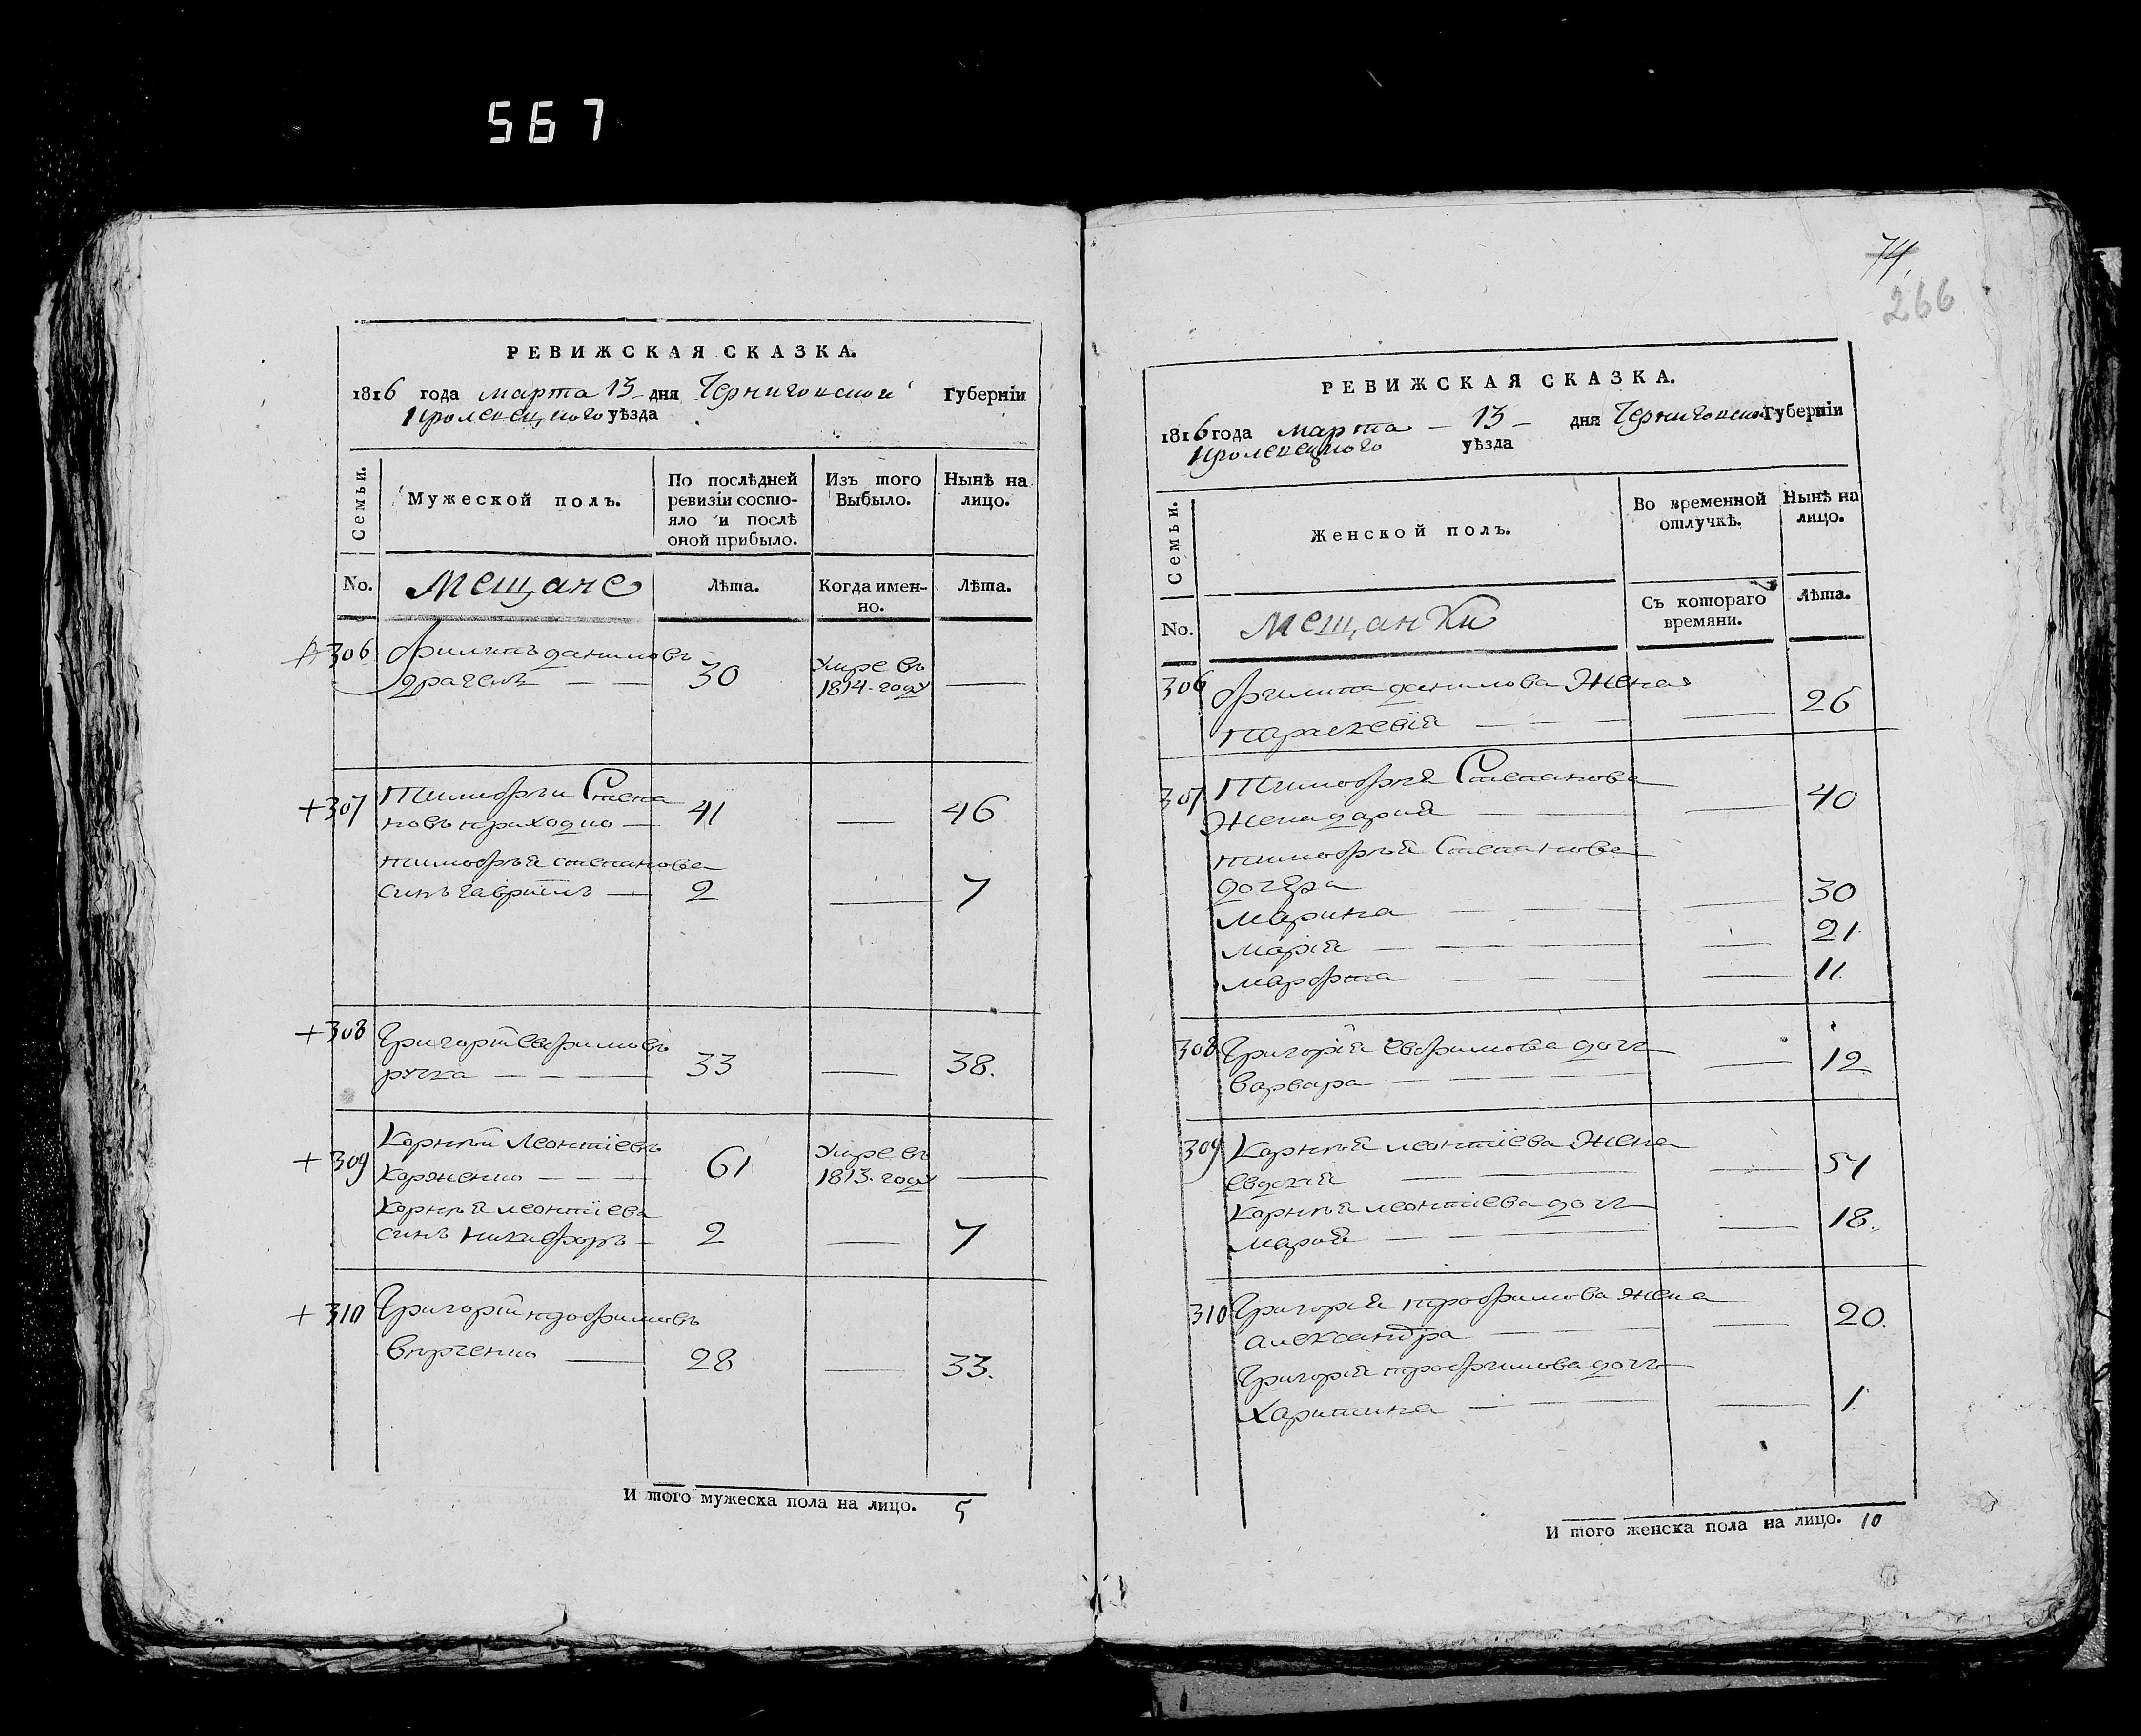 567
РЕВИЖСКАЯ СКАЗКА.
1816 года марта 13 дня Черниговской Губерніи
Кролевецкого уѣзда
Семьи.
Мужеской полъ.
По послѣдней ревизіи состояло и послѣ оной прибыло.
Изъ того Выбыло.
Нынѣ на лицо.
No. Мещане Лѣта. Когда именно. Лѣта.
306 Филипъ даниловъ
30 Умре въ 1814. году —
+307 Тимофѣи Степа
новъ приходко — 41 — 46
тимофѣя степанова
синъ гавриилъ — 2 — 7
+308 Григорїй евфимовъ
ручка — 33 — 38.
+309 Карнѣй леонтїевъ
Карженко — 61 Умре въ 1813. году —
Карнѣя леонтїева
синъ никифоръ — 2 — 7
+310 Григорїй трофимовъ
28 — 33.
И того мужеска пола на лицо. 5
74
266
РЕВИЖСКАЯ СКАЗКА.
1816 года марта — 13 — дня Черниговской Губерніи
Кролевецкого уѣзда
Семьи.
Женской полъ.
Во временной отлучкѣ.
Нынѣ на лицо.
No. Мещанки Съ котораго времяни. Лѣта.
306 Филипа данилова Жена
параскевїя — 26
307 Тимофѣя Степанова
Жена дария — 40
тимофѣя Степанова
дочера
Марина — 30
Марїя — 21
Марфта — 11
308 Григорїя евфимова дочь
Варвара — 12
309 Карнѣя леонтїева Жена
евдокия — 54
Карнѣя леонтїева дочь
Мария — 18.
310 Григория трофимова жена
александра — 20.
Григория трофимова дочь
Харитина — 1.
И того женска пола на лицо. 10